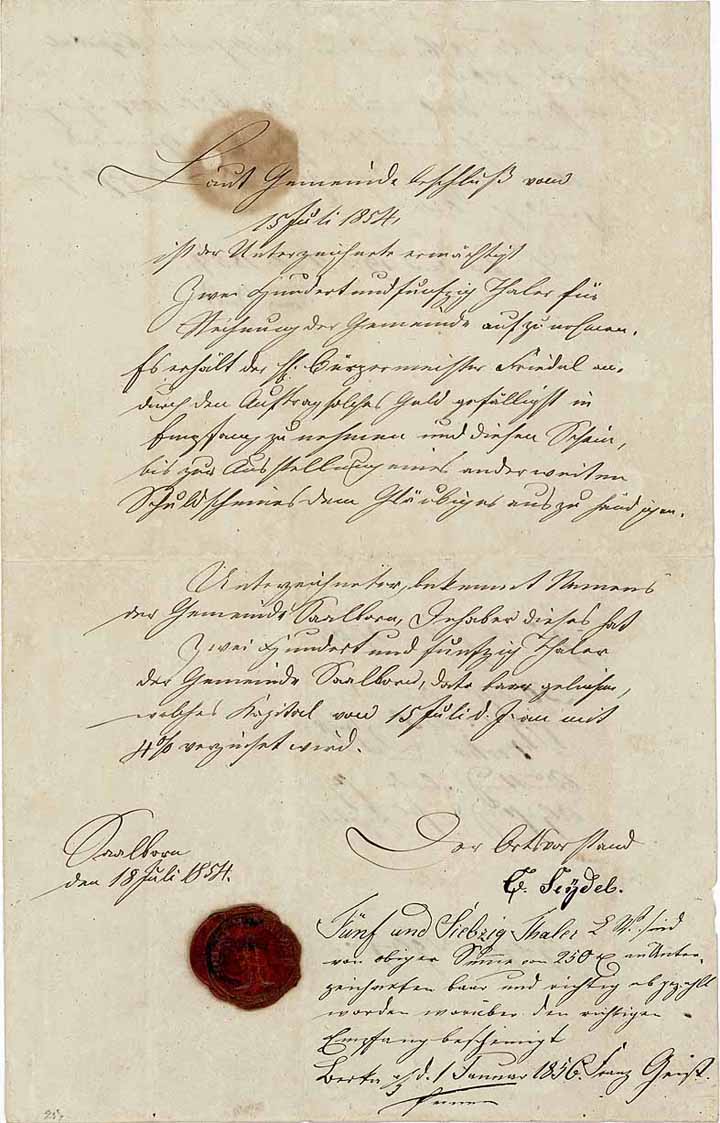 Laut Gemeinde Beschluß vom
15 Juli 1854,
ist der Unterzeichnete ermächtigt
Zwei Hundert und funfzig Thaler für
Rechnung der Gemeinde aufzunehmen.
Es erhält der H. Bürgermeister Friedel an-
durch den Auftrag solches Geld gefälligst in
Empfang zu nehmen und diesen Schein,
bis zur Ausstellung eines anderweiten
Schuldscheines dem Gläubiger auszuhändigen.
Unterzeichneter, bekennet Namens
der Gemeinde Saalborn, Inhaber dieses hat
Zwei Hundert und funfzig Thaler
der Gemeinde Saalborn, dato baar geliehen,
welches Kapital vom 15 Juli d. J. an mit
4% verzinset wird.
Saalborn
den 18 Juli 1854.
Der Ortsvorstand
E. Seydel.
Fünf und Siebzig Thaler sind
von obiger Summe von 250 an Unter-
zeichneten baar und richtig abgezahlt
worden worüber den richtigen
Empfang bescheinigt
Berka d. 1 Januar 1856. Franz Geist.
25,